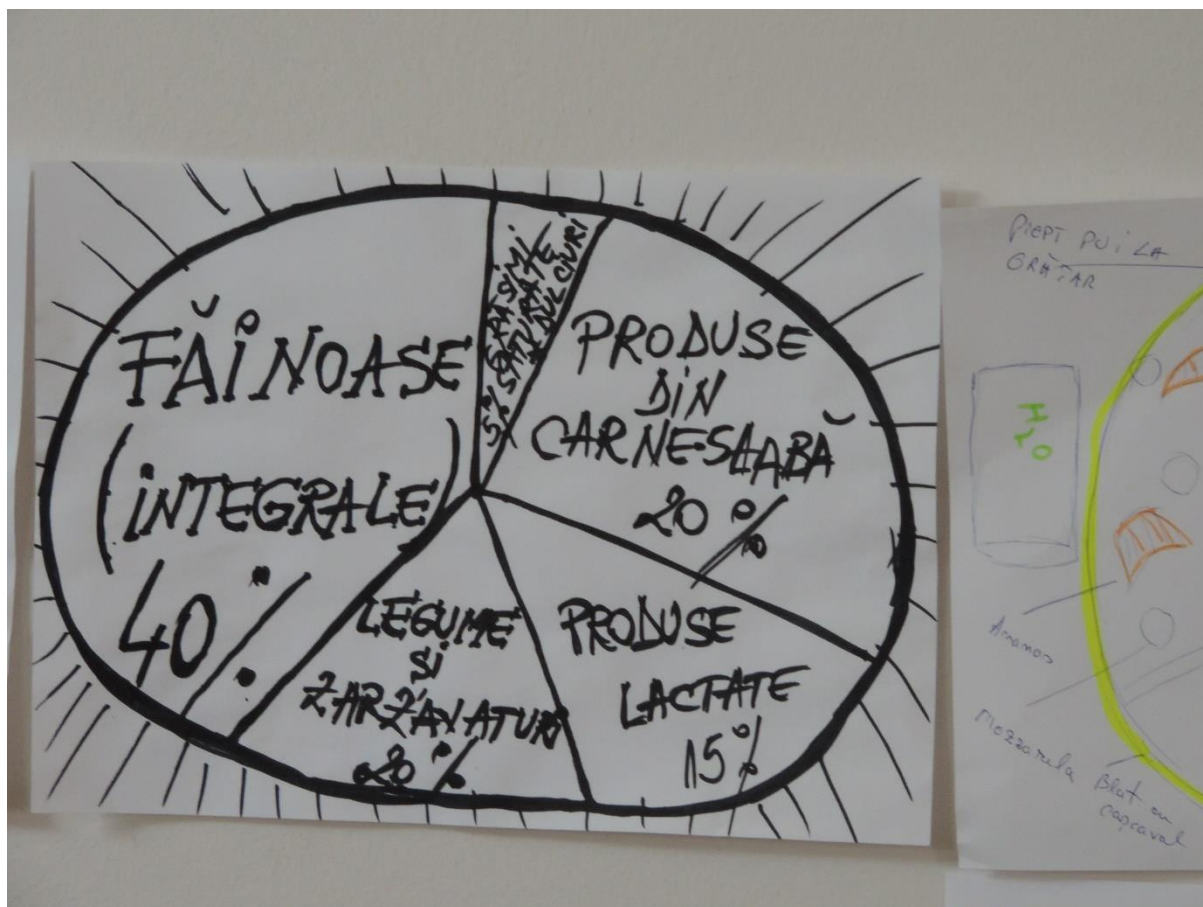 FĂINOASE
(INTEGRALE)
40%
5%
DULCIURI
PRODUSE
DIN
CARNE SLABĂ
20%
LEGUME
ȘI
ZARZAVATURI
20%
PRODUSE
LACTATE
15%
PIEPT PUI LA
GRĂTAR
H2O
Mozzarela
Blat cu
cașcaval